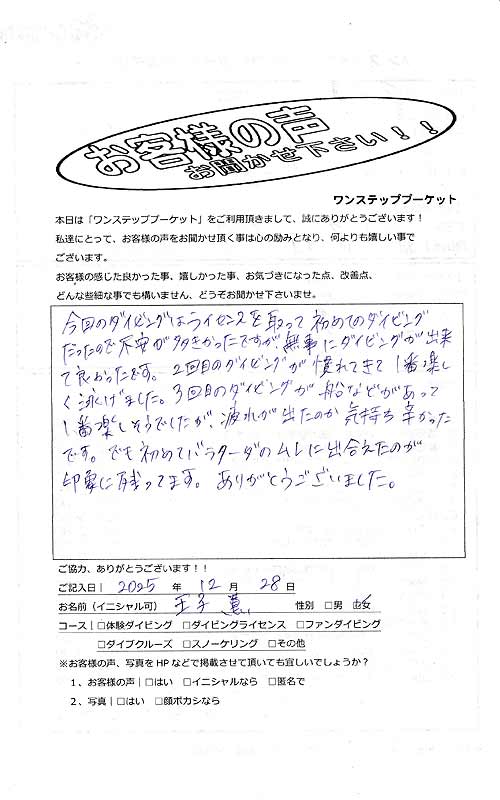 お客様の声
お聞かせ下さい！！
ワンステッププーケット
本日は「ワンステッププーケット」をご利用頂きまして、誠にありがとうございます！
私達にとって、お客様の声をお聞かせ頂く事は心の励みとなり、何よりも嬉しい事で
ございます。
お客様の感じた良かった事、嬉しかった事、お気づきになった点、改善点、
どんな些細な事でも構いません、どうぞお聞かせ下さいませ。
今回のダイビングはライセンスを取って初めてのダイビング
だったので不安が多かったですが無事にダイビングが出来
て良かったです。2回目のダイビングが慣れてきて1番楽し
く泳げました。3回目のダイビングが船などがあって
1番楽しそうでしたが、疲れが出たのか気持ち辛かった
です。でも初めてバラクーダのムレに出合えたのが
印象に残ってます。ありがとうございました。
ご協力、ありがとうございます！！
ご記入日｜2025 年 12 月 28 日
お名前（イニシャル可） 王子 性別 □男 □女
コース｜□体験ダイビング □ダイビングライセンス □ファンダイビング
□ダイブクルーズ □スノーケリング □その他
※お客様の声、写真をHPなどで掲載させて頂いても宜しいでしょうか？
1、お客様の声｜□はい □イニシャルなら □匿名で
2、写真｜□はい □顔ボカシなら